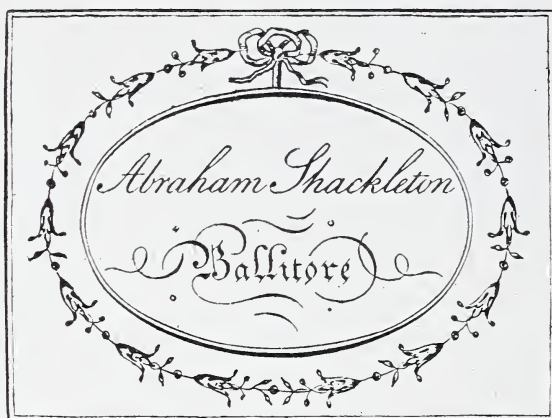 Abraham Shackleton
Ballitore